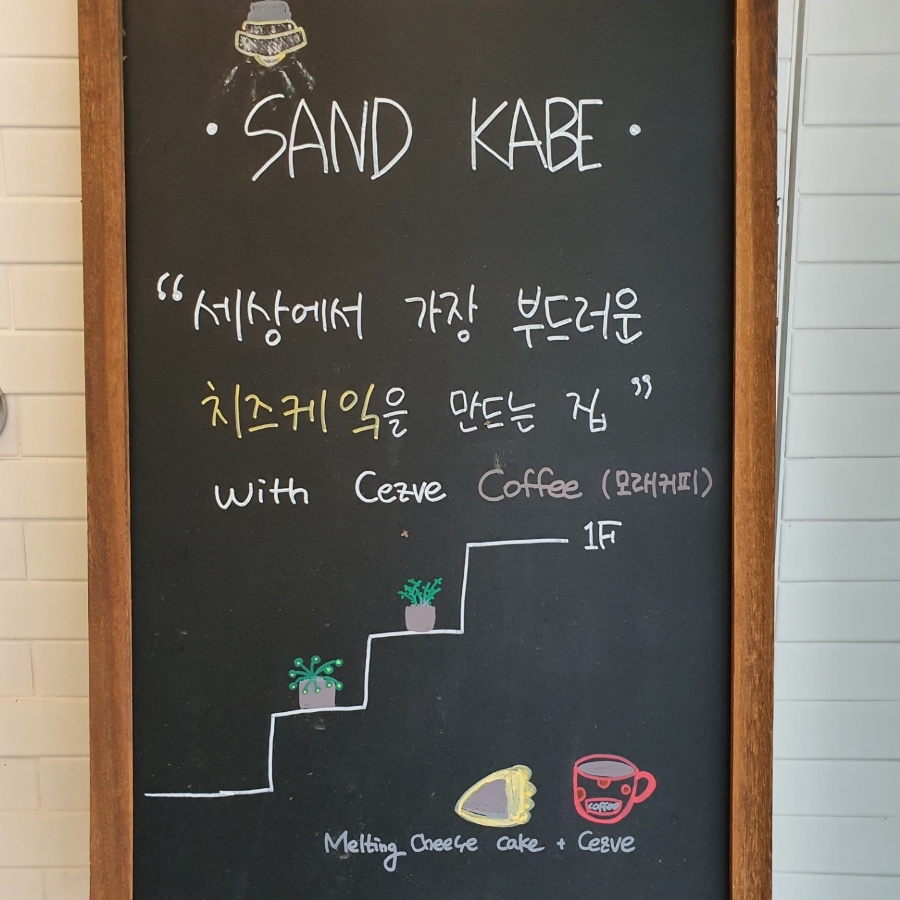 · SAND KABE ·
“세상에서 가장 부드러운
치즈케익을 만드는 집”
With Cezve Coffee (모래커피)
1F
coffee
Melting Cheese cake + Cezve